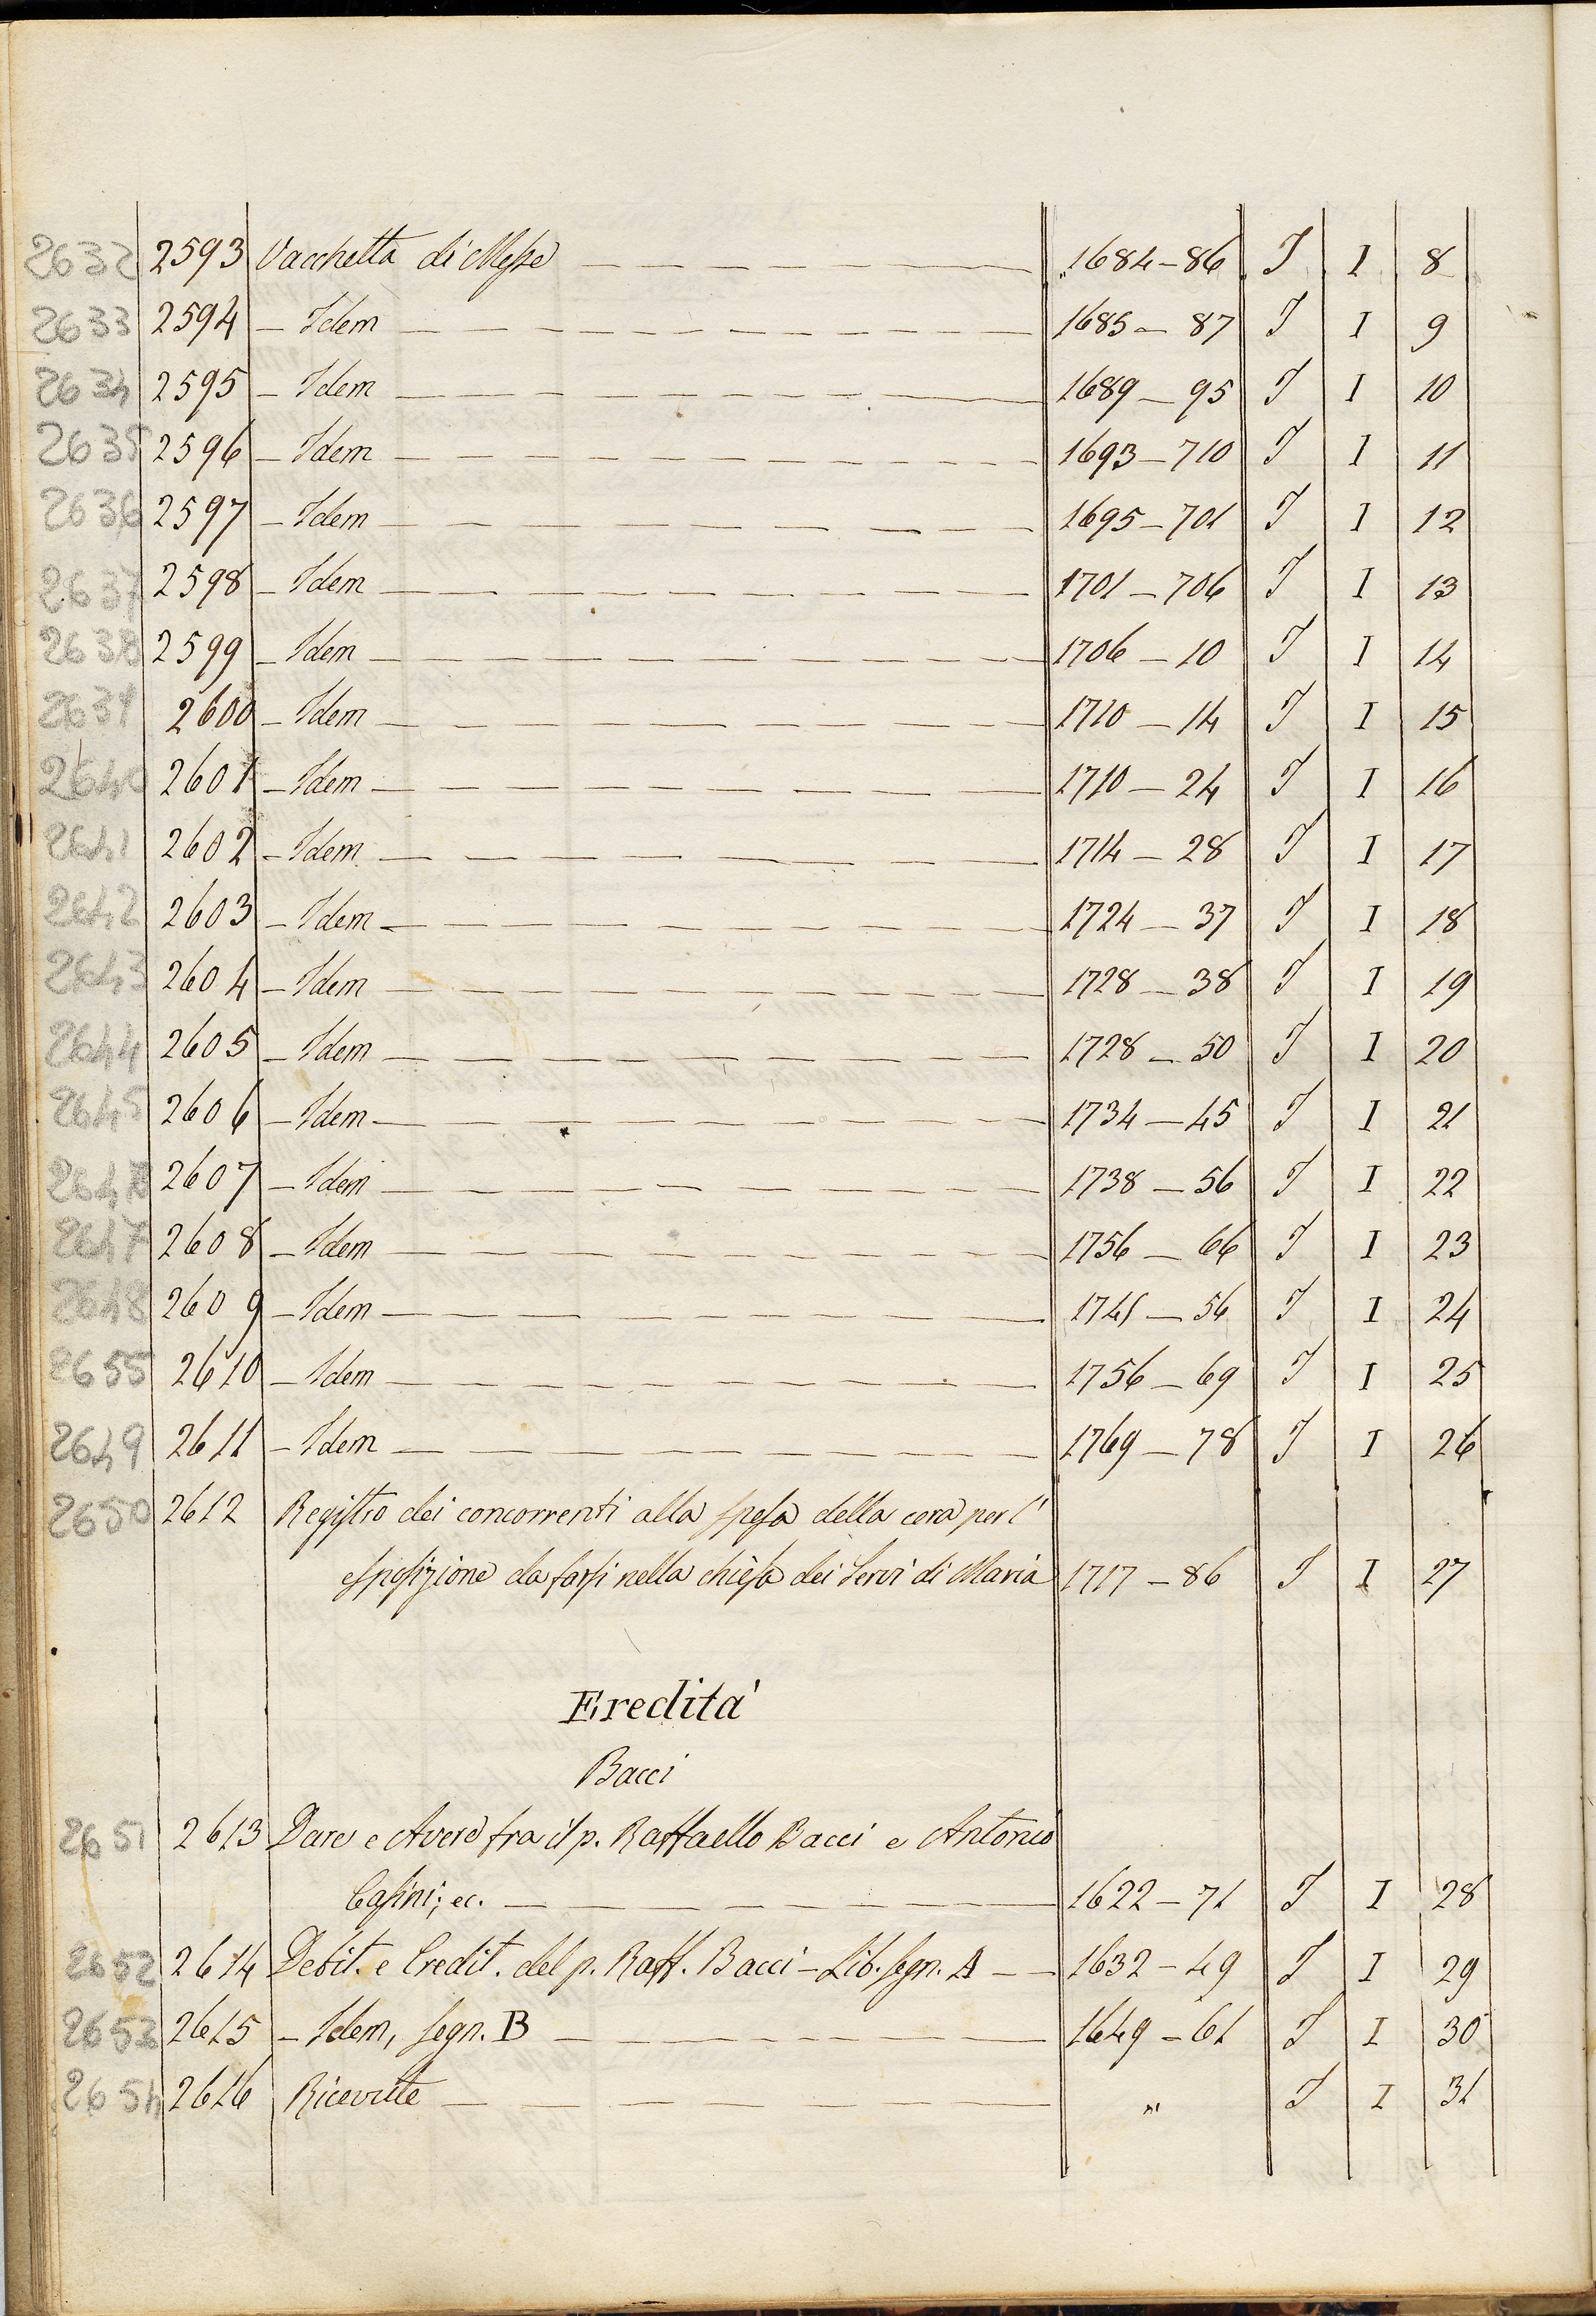 2632 2593 Vacchetta di Messe 1684-86 I I 8
2633 2594 - Idem 1685-87 I I 9
2634 2595 - Idem 1689-95 I I 10
2635 2596 - Idem 1693-710 I I 11
2636 2597 - Idem 1695-701 I I 12
2637 2598 - Idem 1701-706 I I 13
2638 2599 - Idem 1706-10 I I 14
2639 2600 - Idem 1710-14 I I 15
2640 2601 - Idem 1710-24 I I 16
2641 2602 - Idem 1714-28 I I 17
2642 2603 - Idem 1724-37 I I 18
2643 2604 - Idem 1728-38 I I 19
2644 2605 - Idem 1728-50 I I 20
2645 2606 - Idem 1734-45 I I 21
2607 - Idem 1738-56 I I 22
2647 2608 - Idem 1756-66 I I 23
2648 2609 - Idem 1741-56 I I 24
2655 2610 - Idem 1756-69 I I 25
2649 2611 - Idem 1769-78 I I 26
2650 2612 Registro dei concorrenti alla spesa della cera per l'
esposizione da farsi nella chiesa dei Servi di Maria 1717-86 I I 27
Eredita'
Bacci
2651 2613 Dare e Avere fra il p. Raffaello Bacci e Antonio
Casini; ec. 1622-71 I I 28
2652 2614 Debit. e Credit. del p. Raff. Bacci - Lib. segn. A 1632-49 I I 29
2653 2615 - Idem, segn. B 1649-61 I I 30
2654 2616 Ricevute " I I 31